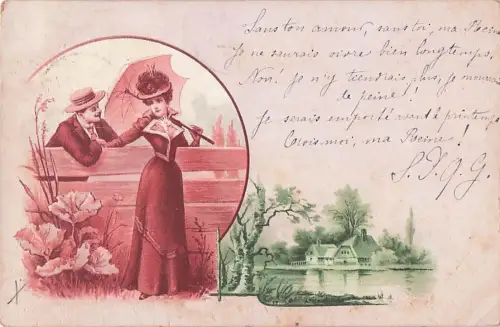 Sans ton amour, sans toi, ma Reine
Je ne saurais vivre bien longtemps,
Non! je n'y tiendrais plus, je mourrai
de peine!
Je serais emporté avant le printemps
Crois-moi, ma Reine!
S.